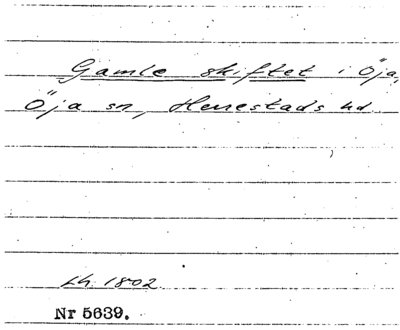 Gamle skiftet i Öja,
Öja sn, Herrestads hd.
Lh. 1802
Nr 5639.